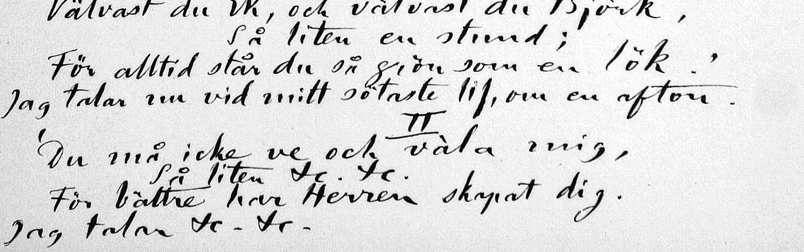 Välvast du Ek, och välvast du Björk,
Så liten en stund;
För alltid står du så grön som en lök.'
Jag talar nu vid mitt sötaste lif, om en afton.
II
'Du må icke ve och väla mig,
Så liten &c. &c.
För bättre har Herren skapat dig.
Jag talar &c - &c -